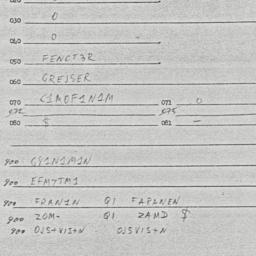 030 0
040 0
050 FENCT3R
060 GREJSER
070 C1MOF1N1M 071 0
072 075
080 $ 081 –
900 GY1N1M1N
900 EFMYTM1
900 FRAN1N Q1 FAPLNEN
900 ZOM- Q1 ZAMD $
900 OJS+VIS+N OJSVIS+N